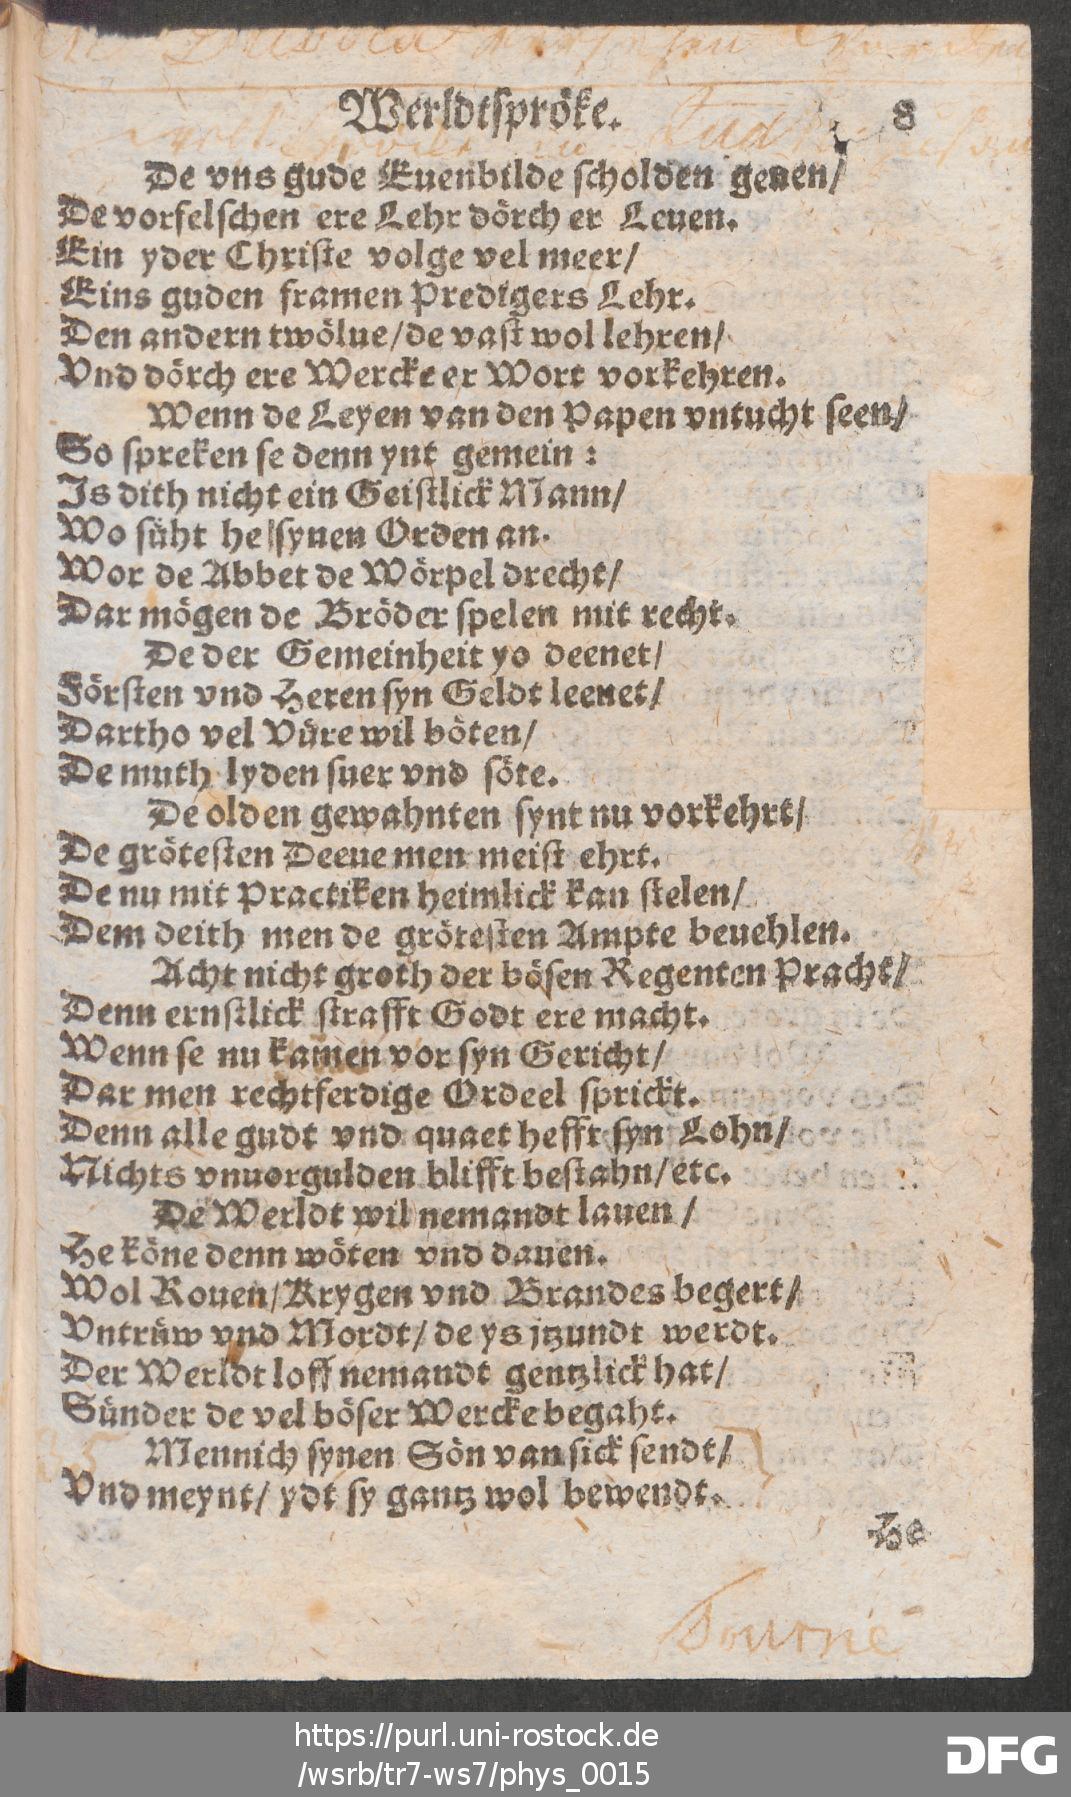 Werldtspröke. 8
De vns gude Euenbilde scholden geuen/
De vorfelschen ere Lehr dörch er Leuen.
Ein yder Christe volge vel meer/
Eins guden framen Predigers Lehr.
Den andern twölue/de vast wol lehren/
Vnd dörch ere Wercke er Wort vorkehren.
Wenn de Leyen van den Papen vntucht seen/
So spreken se denn ynt gemein :
Is dith nicht ein Geistlick Mann/
Wo süht he synen Orden an.
Wor de Abbet de Wörpel drecht/
Dar mögen de Bröder spelen mit recht.
De der Gemeinheit yo deenet/
Försten vnd Heren syn Geldt leenet/
Dartho vel Vüre wil böten/
De muth lyden suer vnd söte.
De olden gewahnten synt nu vorkehrt/
De grötesten Deeue men meist ehrt.
De nu mit Practiken heimlick kan stelen/
Dem deith men de grötesten Ampte beuehlen.
Acht nicht groth der bösen Regenten Pracht/
Denn ernstlick strafft Godt ere macht.
Wenn se nu kamen vor syn Gericht/
Dar men rechtferdige Ordeel sprickt.
Denn alle gudt vnd quaet hefft syn Lohn/
Nichts vnuorgulden blifft bestahn/etc.
De Werldt wil nemandt lauen /
He köne denn wöten vnd dauen.
Wol Rouen/Krygen vnd Brandes begert/
Vntrüw vnd Mordt/ de ys jtzundt werdt.
Der Werldt loff nemandt gentzlick hat/
Sünder de vel böser Wercke begaht.
Mennich synen Sön van sick sendt/
Vnd meynt/ ydt sy gantz wol bewendt.
He
https://purl.uni-rostock.de
/wsrb/tr7-ws7/phys_0015
DFG